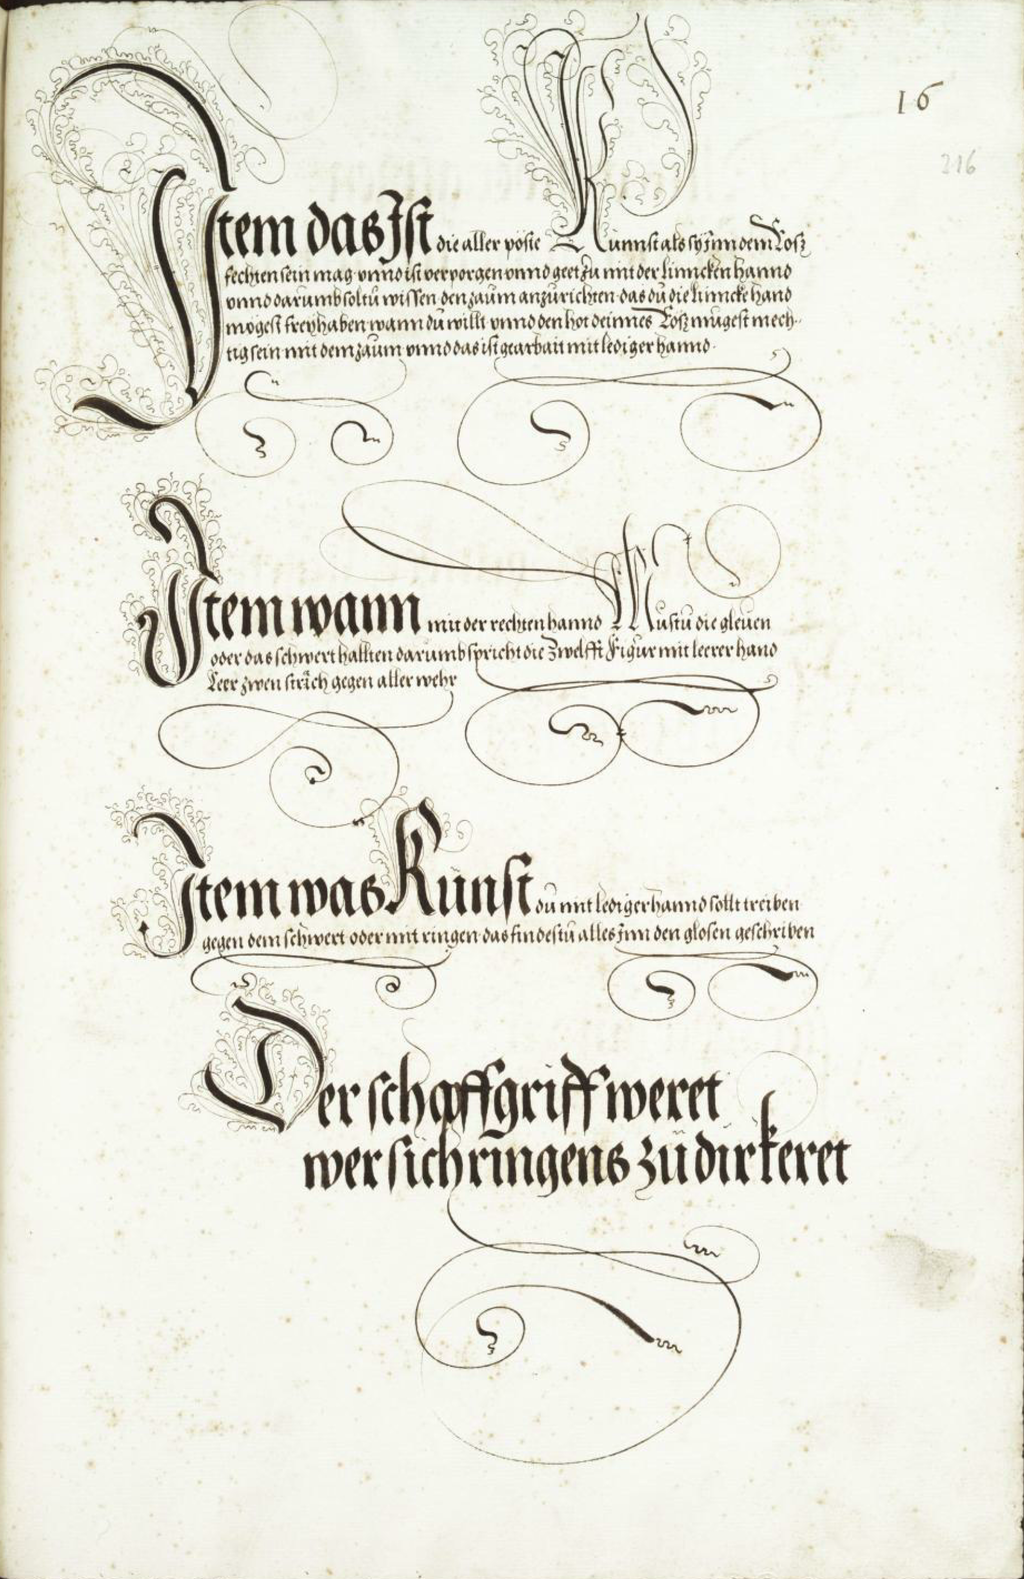 16
216
Item das Ist die aller pöste Künnst als sy Jnn dem Rosz
fechten sein mag vnnd ist verporgen vnnd geet zu mit der linncken hannd
vnnd darumb soltu wissen den zaum anzurichten das du die linncke hand
mögest frey haben wann du willt vnnd den hot deinnes Rosz mugest mech-
tig sein mit dem zaum vnnd das ist gearbait mit lediger hannd
Item wann mit der rechten hannd Mustu die gleuen
oder das schwert hallten darumb spricht die Zwelfft Figur mit leerer hand
Leer zwen strich gegen aller wehr
Item was Künst du mit lediger hannd sollt treiben
gegen dem schwert oder mit ringen das findestu alles Jnn den glosen geschriben
Der schaffgriff weret
wer sich ringens zü dir keret